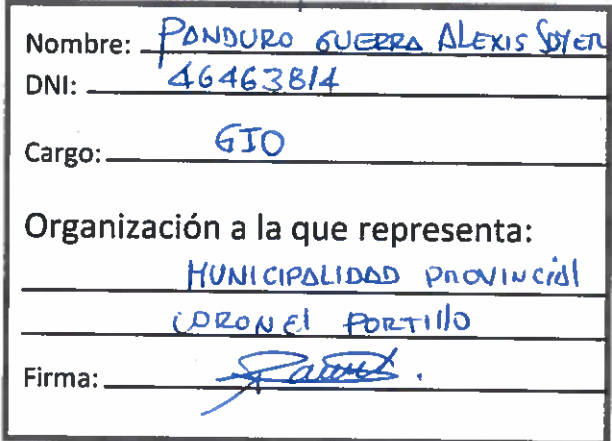 Nombre: PANDURO GUERRA ALEXIS SOYER
DNI: 46463814
Cargo: GIO
Organización a la que representa:
MUNICIPALIDAD PROVINCIAL
CORONEL PORTILLO
Firma: